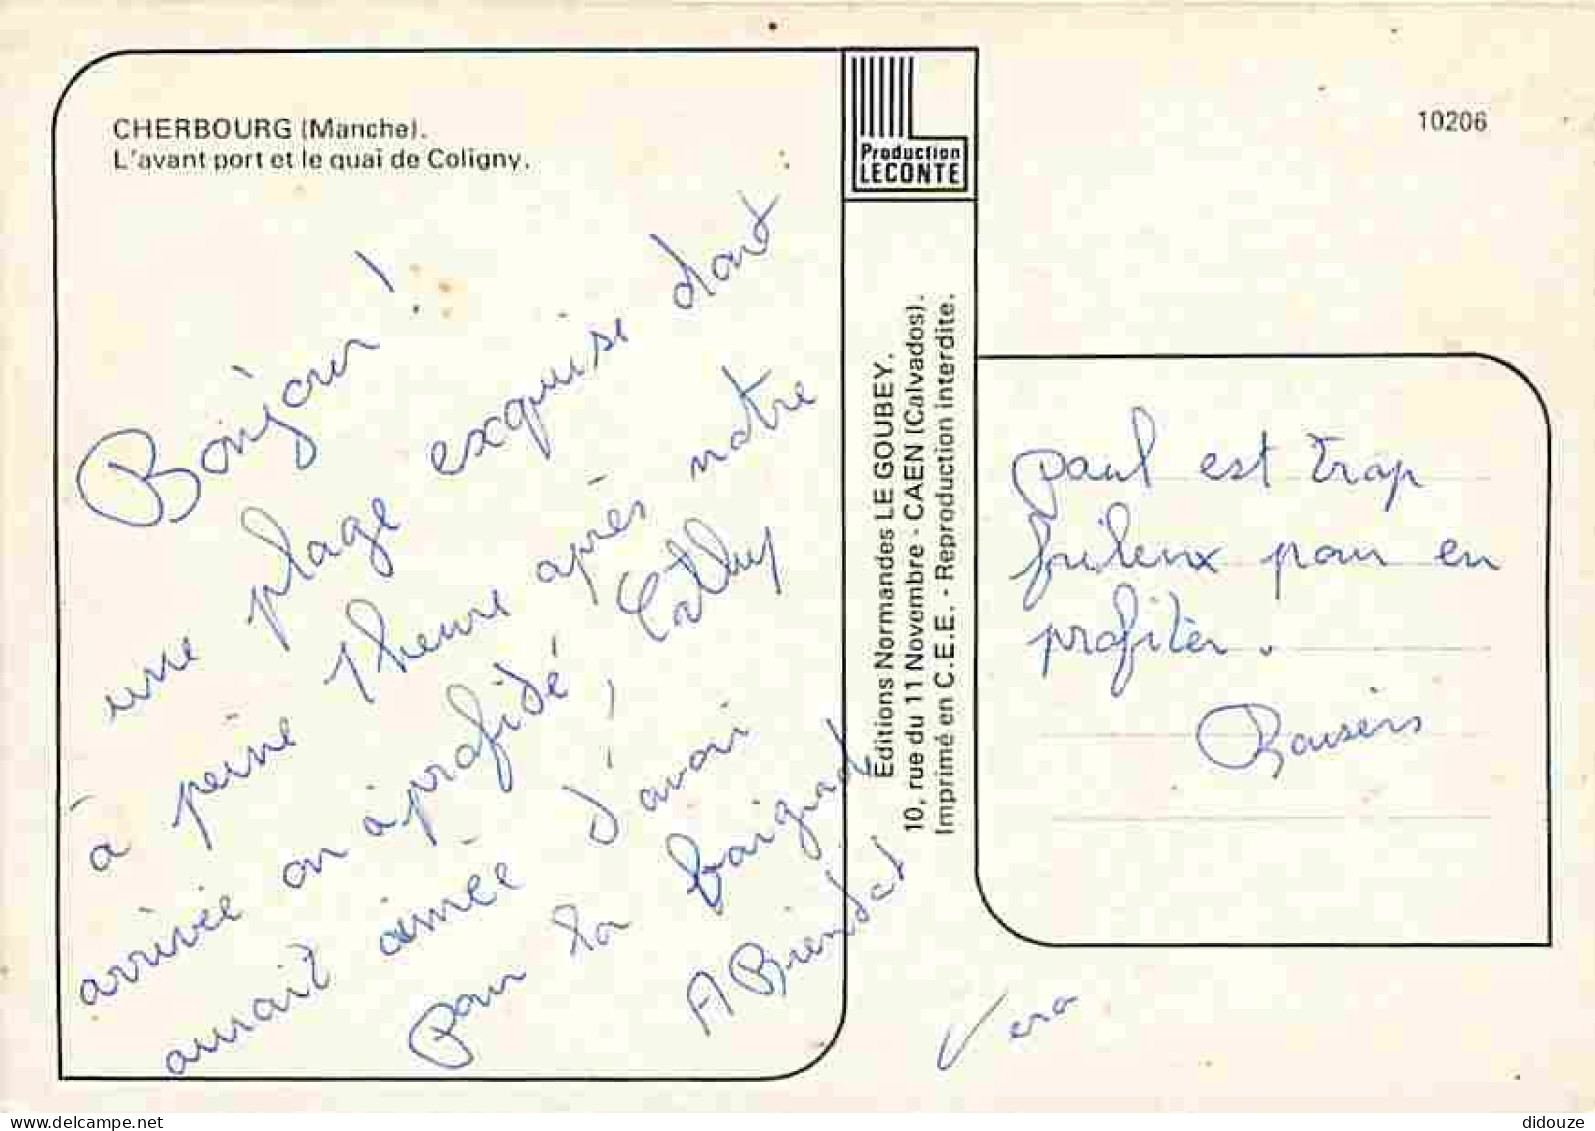 CHERBOURG (Manche).
L'avant port et le quai de Coligny.
Bonjour !
une plage exquise dont
à peine 1 heure après notre
arrivée on a profidé, Cathy
aurait aimée d'avoir
Paul pour la baignade
A Bientot
Vera
Production
LECONTE
Editions Normandes LE GOUBEY.
10, rue du 11 Novembre - CAEN (Calvados).
Imprimé en C.E.E. - Reproduction interdite.
10206
paul est trop
frileux pour en
profiter.
Baisers
delcampe.net
didouze